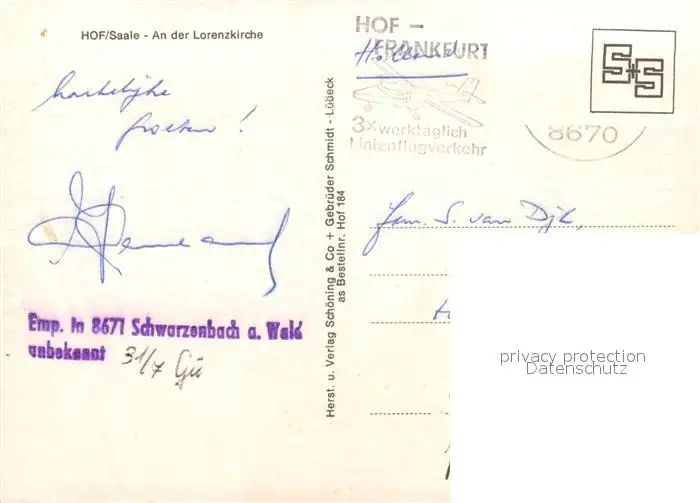 HOF/Saale - An der Lorenzkirche
hartelijke
groeten !
Emp. in 8671 Schwarzenbach a. Wald
unbekannt
31/7 Gü
Herst. u. Verlag Schöning & Co + Gebrüder Schmidt - Lübeck
as Bestellnr. Hof 184
HOF -
FRANKFURT
Holland
3x werktäglich
Linienflugverkehr
S+S
8670
Fam. S. van Dijk,
privacy protection
Datenschutz